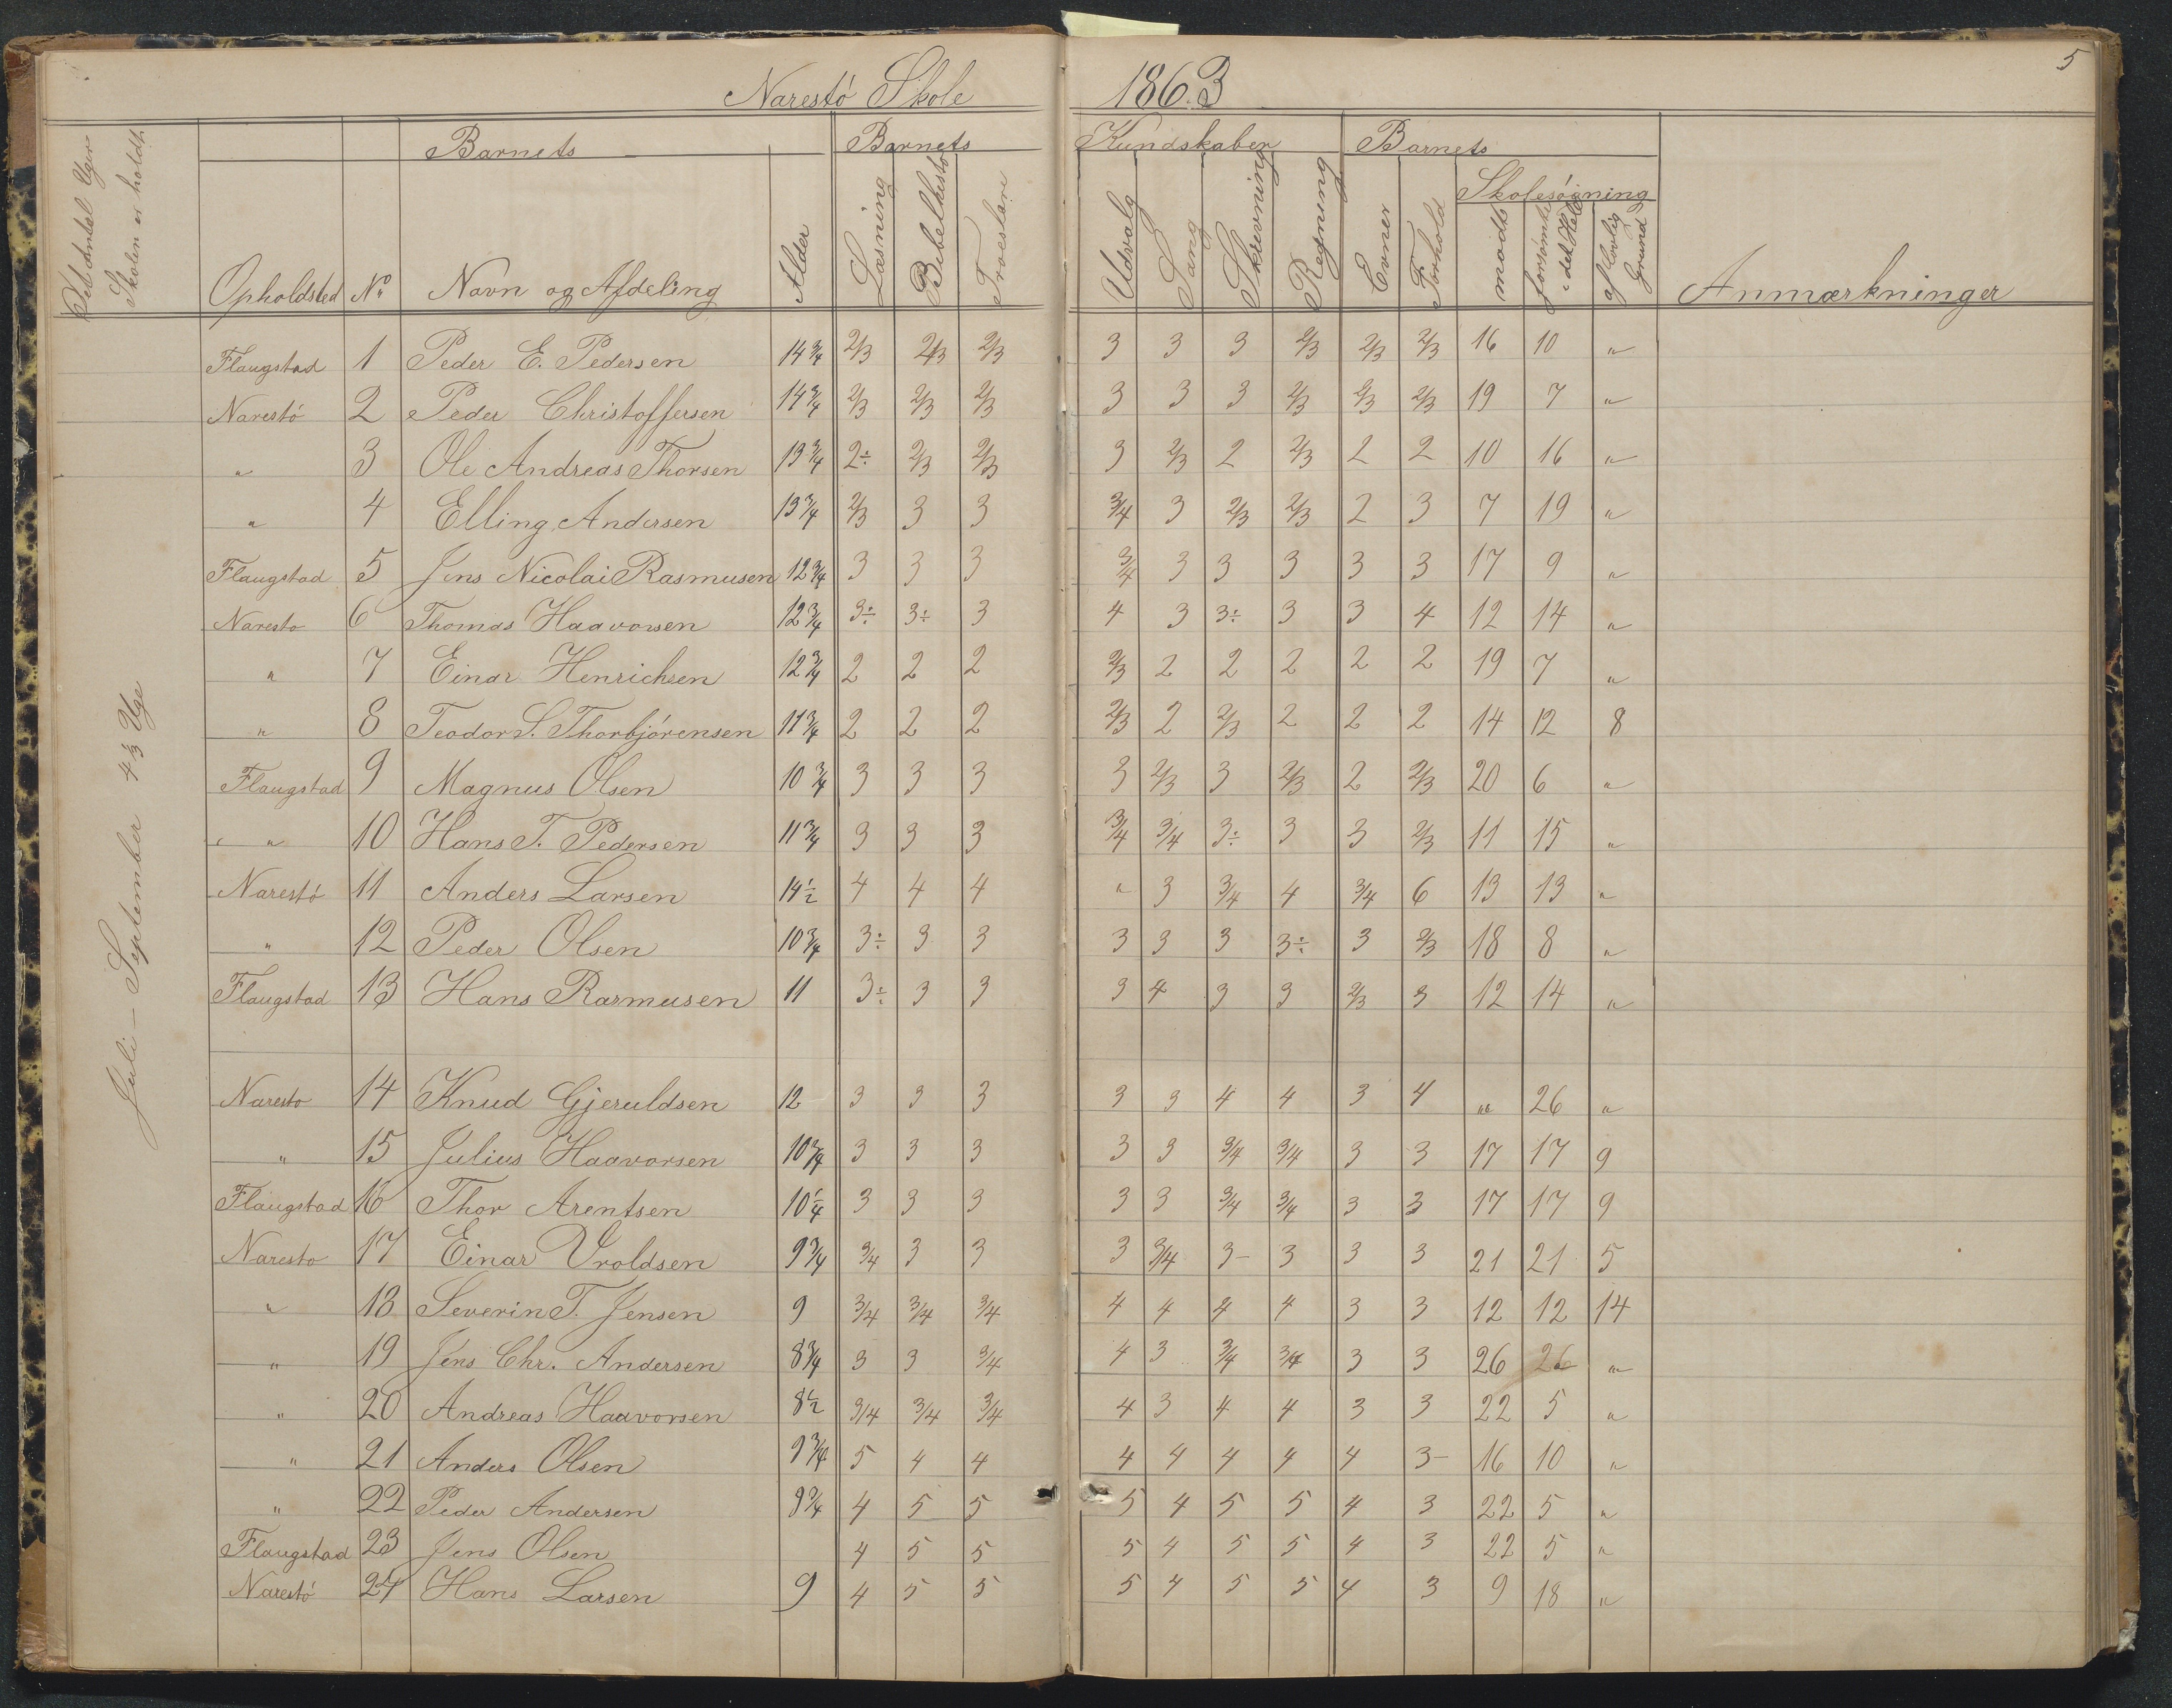 5
Narestö Skole 1863
Det Antal Uger Skolen er holdt
Barnets
Barnets Kundskaber
Barnets
Skolesøgning
Opholdsted No Navn og Afdeling Alder Læsning Bibelhisto Troeslære Udvalg Sang Skrevning Regning Evner Forhold modt forsømt i det Hele af lovlig Grund Anmærkninger
Juli - September 4⅓ Uge
Flaugstad 1 Peder E. Pedersen 14 3/4 2/3 2/3 2/3 3 3 3 2/3 2/3 2/3 16 10 "
Narestö 2 Peder Christoffersen 14 3/4 2/3 2/3 2/3 3 3 3 2/3 2/3 2/3 19 7 "
" 3 Ole Andreas Thorsen 13 3/4 2÷ 2/3 2/3 3 2/3 2 2/3 2 2 10 16 "
" 4 Elling Andersen 13 3/4 2/3 3 3 3/4 3 2/3 2/3 2 3 7 19 "
Flaugstad 5 Jens Nicolai Rasmusen 12 3/4 3 3 3 3/4 3 3 3 3 3 17 9 "
Naresto 6 Thomas Haavorsen 12 3/4 3÷ 3÷ 3 4 3 3÷ 3 3 4 12 14 "
" 7 Einar Henrichsen 12 3/4 2 2 2 2/3 2 2 2 2 2 19 7 "
" 8 Teodor S. Thorbjörensen 11 3/4 2 2 2 2/3 2 2/3 2 2 2 14 12 8
Flaugstad 9 Magnus Olsen 10 3/4 3 3 3 3 2/3 3 2/3 2 2/3 20 6 "
" 10 Hans T. Pedersen 11 3/4 3 3 3 3/4 3/4 3÷ 3 3 2/3 11 15 "
Narestö 11 Anders Larsen 14 1/2 4 4 4 " 3 3/4 4 3/4 6 13 13 "
" 12 Peder Olsen 10 3/4 3÷ 3 3 3 3 3 3÷ 3 2/3 18 8 "
Flaugstad 13 Hans Rasmusen 11 3÷ 3 3 3 4 3 3 2/3 3 12 14 "
Naresto 14 Knud Gjeruldsen 12 3 3 3 3 3 4 4 3 4 " 26 "
" 15 Julius Haavorsen 10 3/4 3 3 3 3 3 3/4 3/4 3 3 17 17 9
Flaugstad 16 Thor Arentsen 10 1/4 3 3 3 3 3 3/4 3/4 3 3 17 17 9
Naresto 17 Einar Vroldsen 9 3/4 3/4 3 3 3 3/4 3- 3 3 3 21 21 5
" 18 Severin T. Jensen 9 3/4 3/4 3/4 4 4 4 4 3 3 12 12 14
" 19 Jens Chr. Andersen 8 3/4 3 3 3/4 4 3 3/4 3/4 3 3 26 26 "
" 20 Andreas Haavorsen 8 1/2 3/4 3/4 3/4 4 3 4 4 3 3 22 5 "
" 21 Anders Olsen 9 3/4 5 4 4 4 4 4 4 4 3- 16 10 "
" 22 Peder Andersen 9 3/4 4 5 5 5 4 5 5 4 3 22 5 "
Flaugstad 23 Jens Olsen 4 5 5 5 4 5 5 4 3 22 5 "
Narestö 24 Hans Larsen 9 4 5 5 5 4 5 5 4 3 9 18 "